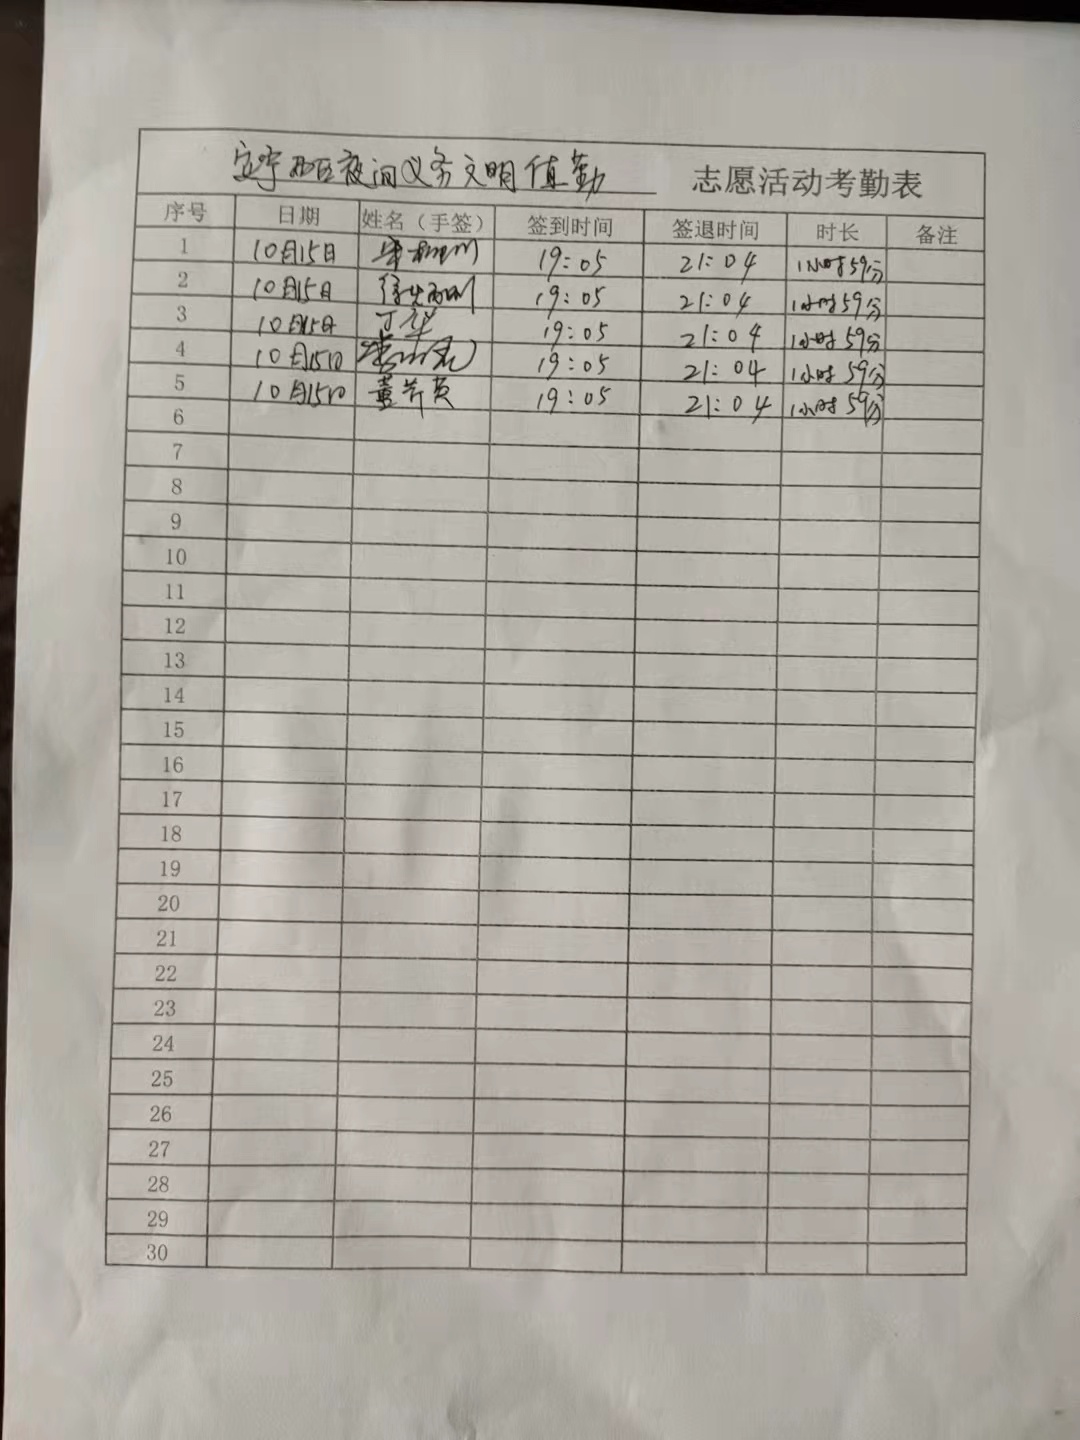 定宁西区夜间义务文明值勤 志愿活动考勤表
序号 日期 姓名（手签） 签到时间 签退时间 时长 备注
1 10月15日 19:05 21:04 1小时59分
2 10月15日 19:05 21:04 1小时59分
3 10月15日 丁华 19:05 21:04 1小时59分
4 10月15日 19:05 21:04 1小时59分
5 10月15日 黄芥英 19:05 21:04 1小时59分
6
7
8
9
10
11
12
13
14
15
16
17
18
19
20
21
22
23
24
25
26
27
28
29
30